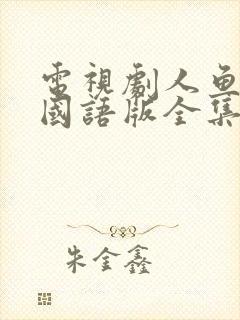 電視劇人魚
國語版全集
朱金鑫